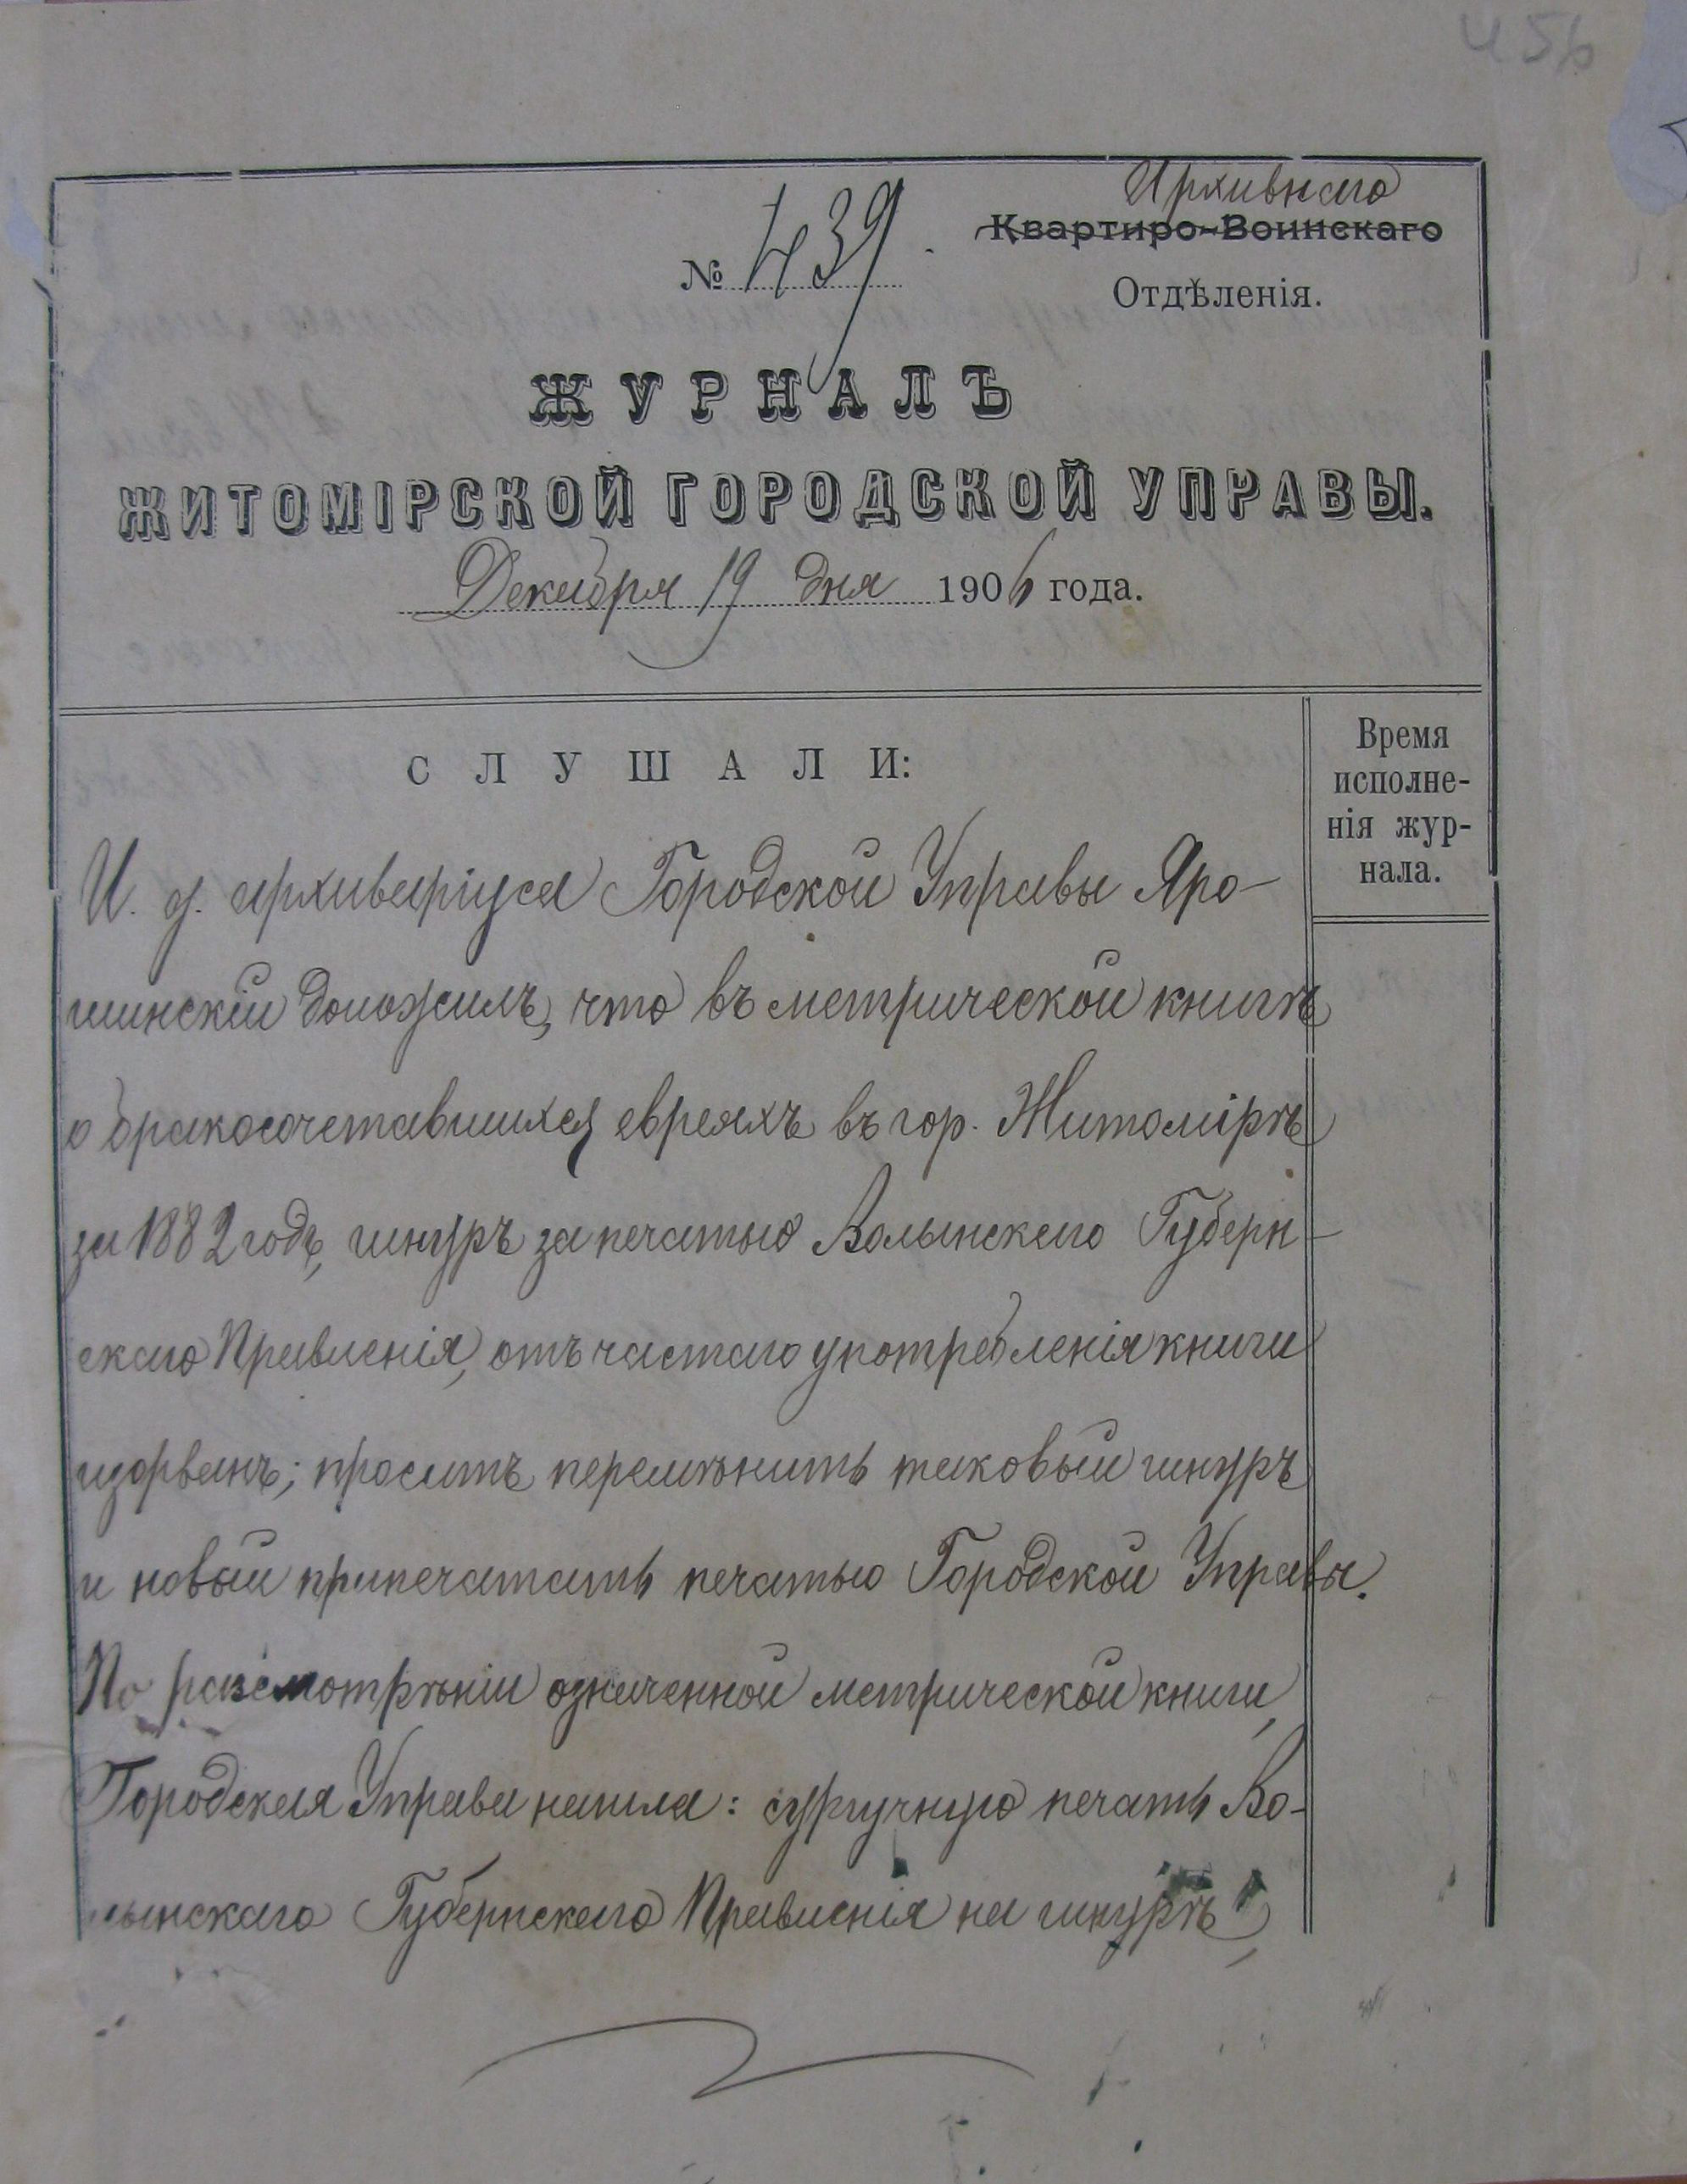 456
Архивнаго
№ 439.
Квартиро-Воинскаго
Отдѣленія.
ЖУРНАЛЪ
ЖИТОМІРСКОЙ ГОРОДСКОЙ УПРАВЫ.
Декабря 19 дня 1906 года.
СЛУШАЛИ:
Время
исполне-
нія жур-
нала.
И. д. архиваріуса Городской Управы Яро-
шинскій доложилъ, что въ метрической книгѣ
о бракосочетавшихся евреяхъ въ гор. Житомірѣ
за 1882 годъ, шнуръ за печатью Волынскаго Губерн-
скаго Правленія, отъ частаго употребленія книги
изорванъ; проситъ перемѣнить таковый шнуръ
и новый припечатать печатью Городской Управы.
По разсмотрѣніи означенной метрической книги,
Городская Управа нашла: сургучную печать Во-
лынскаго Губернскаго Правленія на шнурѣ,